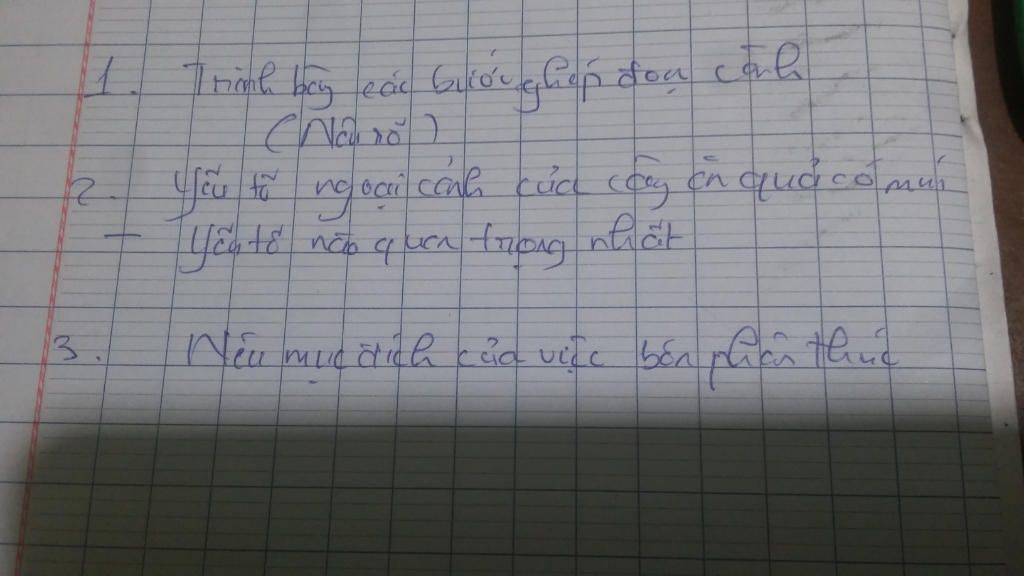 1. Trình bày các bước ghép đoạn cành
(Nêu rõ)
2. Yếu tố ngoại cảnh của cây ăn quả có múi
+ Yếu tố nào quan trọng nhất
3. Nêu mục đích của việc bón phân thúc